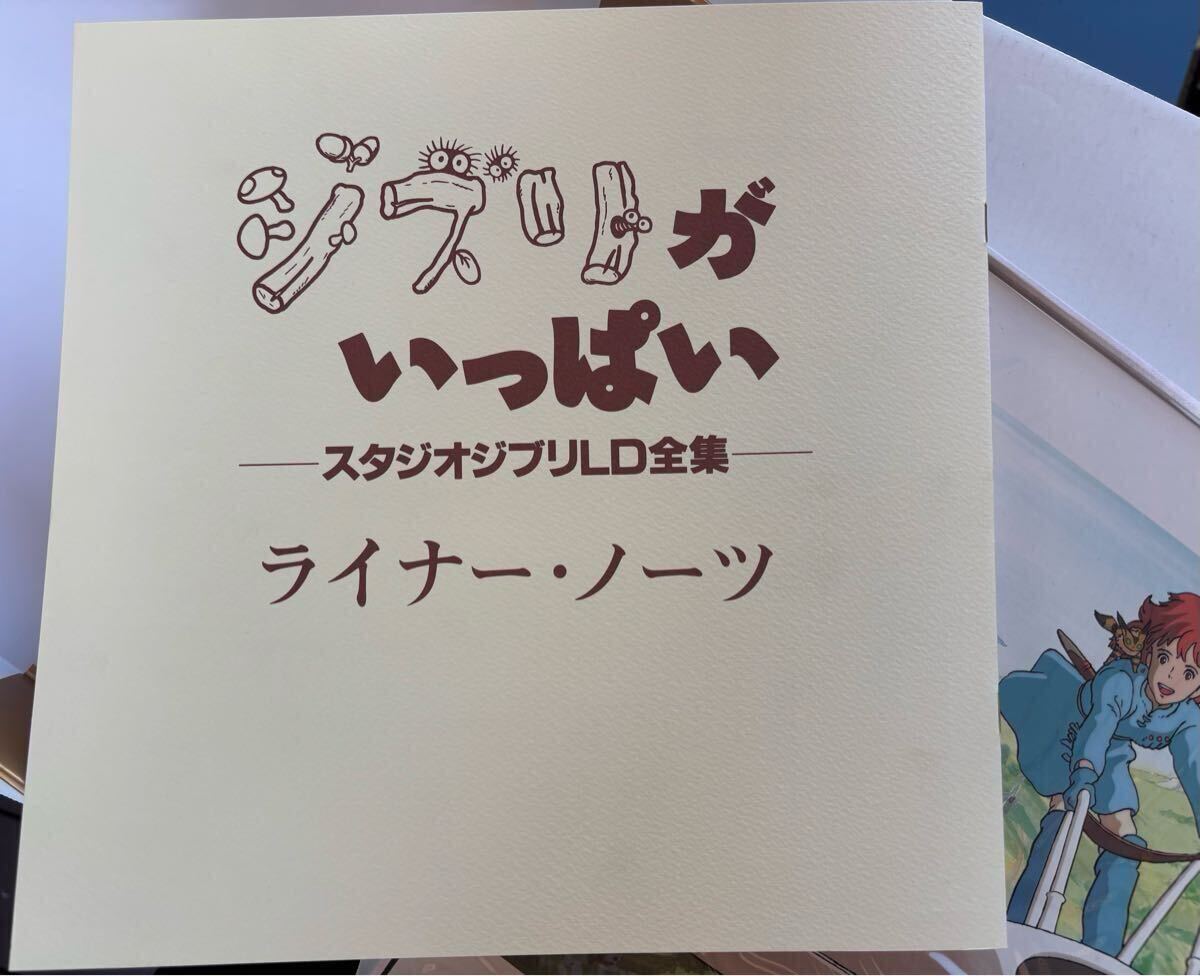 ジブリが
いっぱい
スタジオジブリLD全集
ライナー・ノーツ